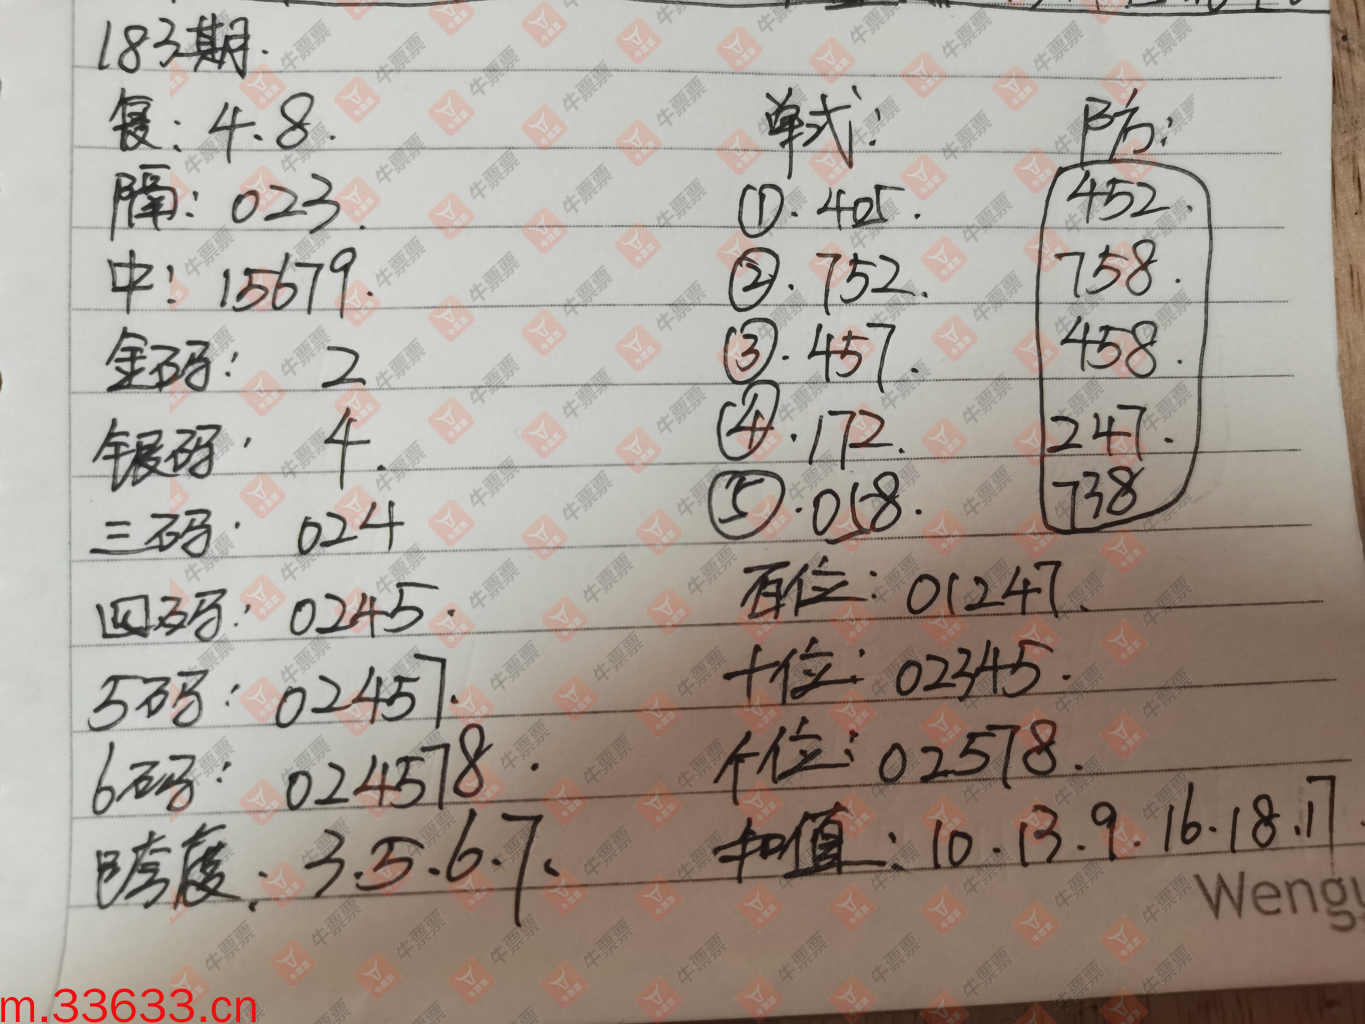 183期.
复: 4.8.
隔: 023.
中: 15679.
金码: 2
银码: 4.
三码: 024
四码: 0245.
5码: 02457.
6码: 024578.
跨度: 3.5.6.7.
单式:
①.405.
②.752.
③.457.
④.172.
⑤.018.
防:
452.
758.
458.
247.
738
百位: 01247.
十位: 02345.
个位: 02578.
和值: 10.13.9.16.18.17.
Wengu
牛票票
m.33633.cn